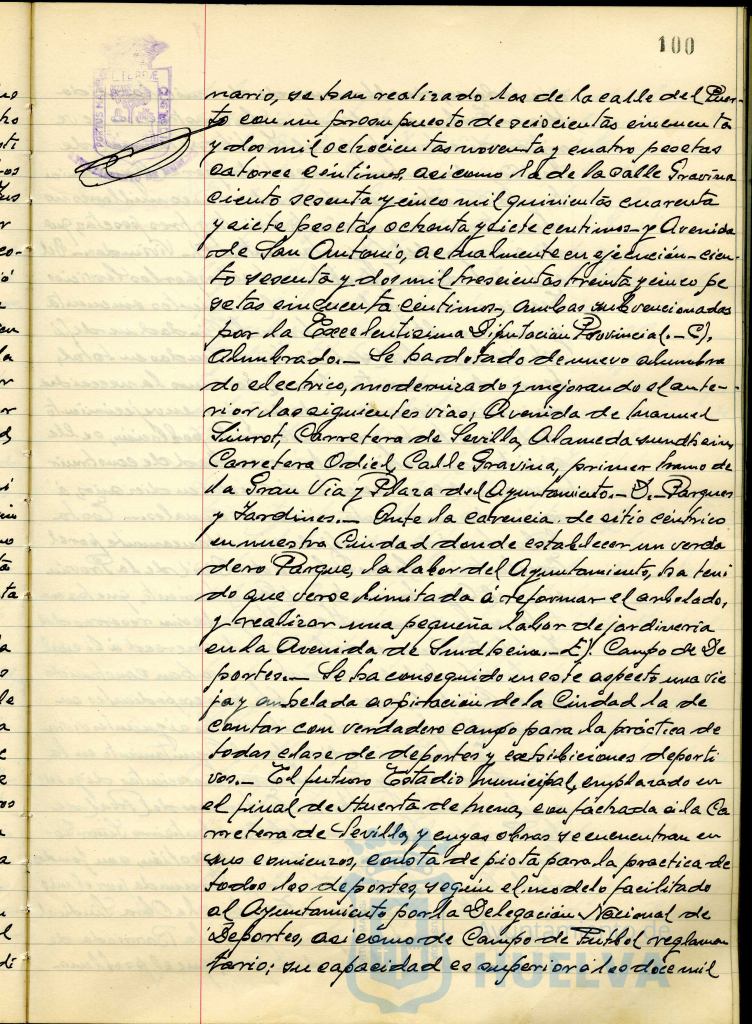 100
nario, se han realizado las de la calle del Puer-
to con un presupuesto de seiscientas cincuenta
y dos mil ochocientas noventa y cuatro pesetas
catorce céntimos, asi como la de la calle Gravina
ciento sesenta y cinco mil quinientas cuarenta
y siete pesetas ochenta y siete centimos- y Avenida
de San Antonio, actualmente en ejecución-cien-
to sesenta y dos mil trescientas treinta y cinco pe
setas cincuenta céntimos-, ambas subvencionadas
por la Excelentisima Diputación Provincial.- C).
Alumbrado.- Se ha dotado de nuevo alumbra
do electrico, modernizado y mejorando el ante-
rior las siguientes vias; Avenida de Manuel
Siurot, Carretera de Sevilla, Alameda Sundheim,
Carretera Odiel, Calle Gravina, primer tramo de
la Gran Via y Plaza del Ayuntamiento.- D.- Parques
y Jardines.- Ante la carencia de sitio céntrico
en nuestra Ciudad donde establecer un verda
dero Parque, la labor del Ayuntamiento, ha teni
do que verse limitada á reformar el arbolado,
y realizar una pequeña labor de jardineria
en la Avenida de Sundheim.- E). Campo de De
portes.- Se ha conseguido en este aspecto una vie
ja y anhelada aspiración de la Ciudad la de
contar con verdadero campo para la práctica de
todas clase de deportes y exhibiciones deporti
vas.- El futuro Estadio municipal, emplazado en
el final de Huerta de Mena, con fachada á la Ca
rretera de Sevilla, y cuyas obras se encuentran en
sus comienzos, consta de pista para la practica de
todos los deportes, según el modelo facilitado
al Ayuntamiento por la Delegación Nacional de
Deportes, asi como de Campo de Futbol reglamen
tario; su capacidad es superior á los doce mil
Ayuntamiento de
HUELVA